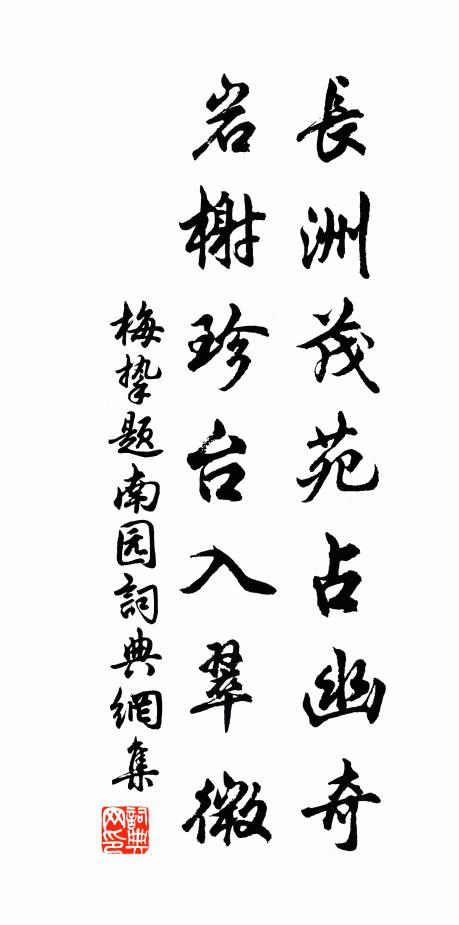 長洲茂苑占幽奇
岩榭珍台入翠微
梅摯題南园詞典網集
詞典网印